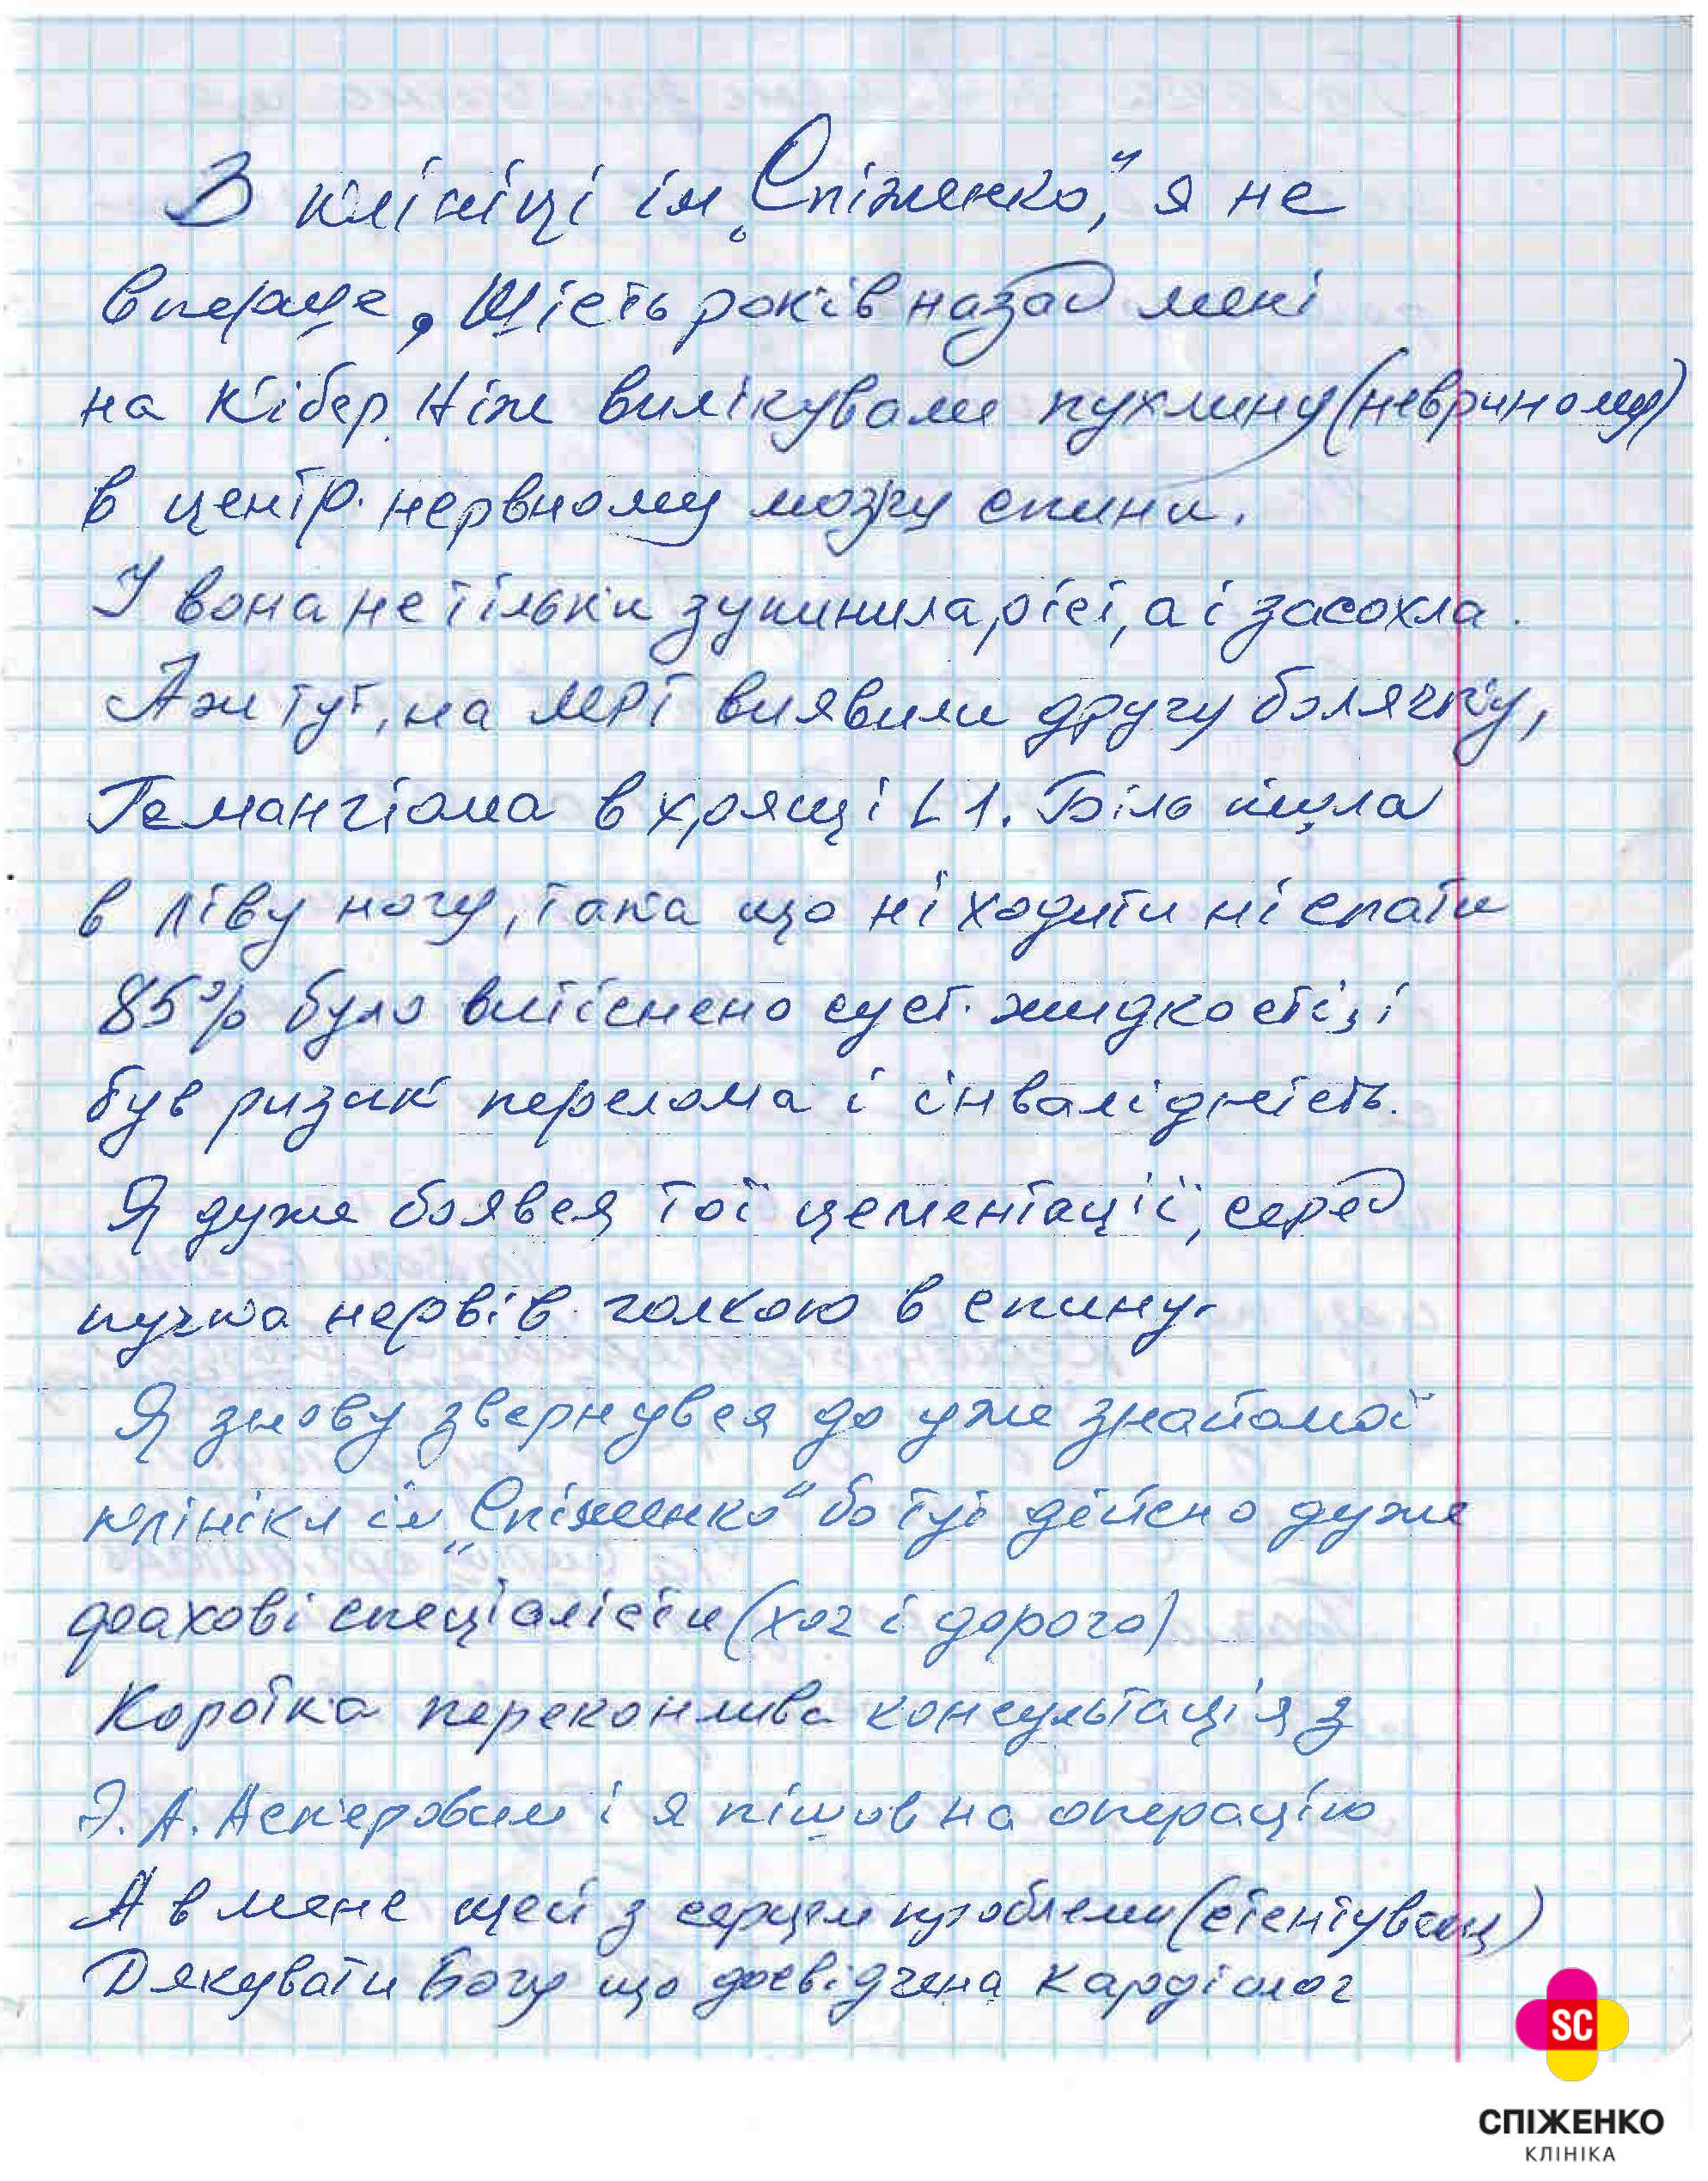 З клініці ім „Спіженко", я не
вперше, Шість років назад мені
на Кібер Ніж вилікували пухлину (невриному)
в центр. нервному мозгу спини.
І вона не тільки зупинила ріст, а і засохла.
Аж тут, на МРТ виявили другу болячку,
Гемангіома в хрящі L1. Біль пішла
в ліву ногу, така що ні ходити ні спати
85% було витіснено суст. жидкості, і
був ризик перелома і інвалідність.
Я дуже боявся тої цементації, серед
пучка нервів голкою в спину.
Я знову звернувся до уже знайомої
клініки ім „Спіженко" бо тут дійсно дуже
фахові спеціалісти (хоч і дорого)
Коротка переконлива консультація з
Э. А. Аскеровим і я пішов на операцію
А в мене щей з серцем проблеми (стентуван)
Дякувати Богу що досвідчена Кардіолог
SC
СПІЖЕНКО
КЛІНІКА